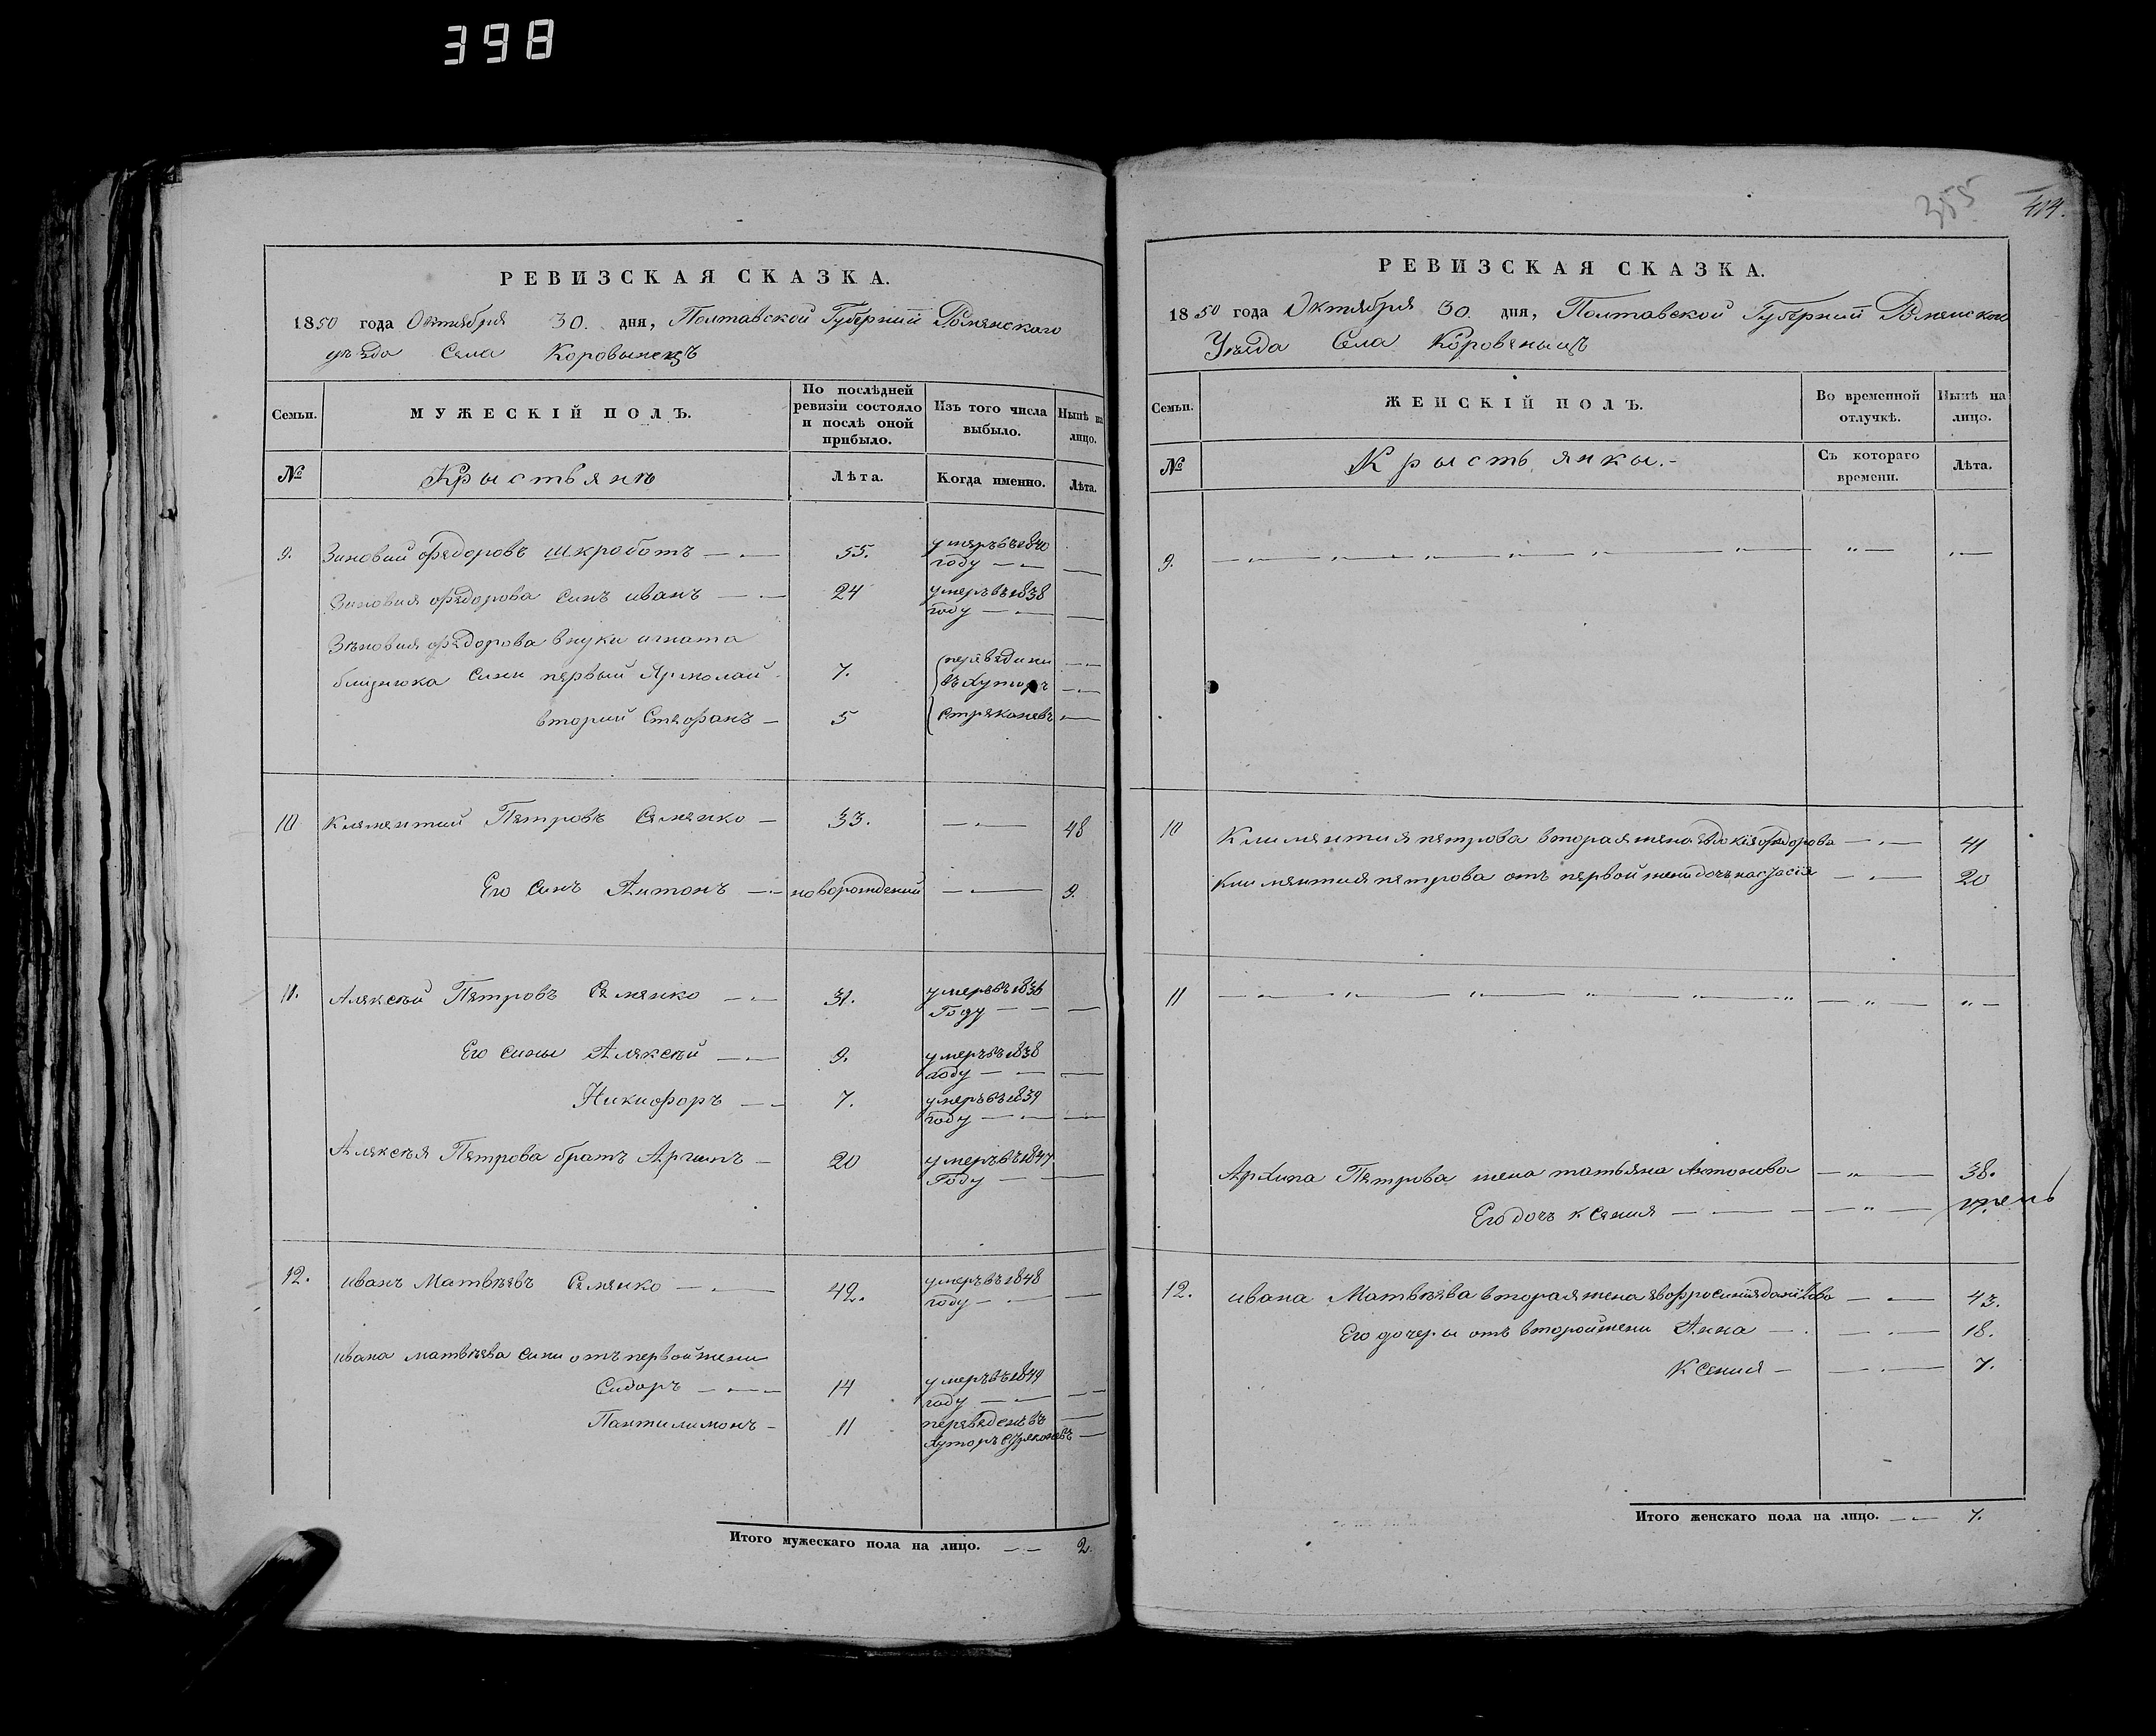 398
РЕВИЗСКАЯ СКАЗКА.
1850 года Октября 30. дня, Полтавской Губерний Роменскаго
уезда Села Коровынецъ
Семьи.
МУЖЕСКІЙ ПОЛЪ.
По послѣдней ревизіи состояло и послѣ оной прибыло.
Изъ того числа выбыло.
Нынѣ на лицо.
№
Крыстьянъ
Лѣта.
Когда именно.
Лѣта.
9. Зиновий Федоровъ шкроботъ — 55. умеръ въ 1840
году —
Зиновия федорова синъ иванъ — 24 умеръ въ 1838
году —
Зѣновия федорова внуки игната
близнюка сини первый Ярмолай 7. переведини
въ хуторъ
вторий Стефанъ — 5 Стряконевъ
10 Клементий Петровъ Сененко — 33. — 48
Его Синъ Антонъ — новорожденний — 9.
11. Алексѣй Петровъ Сененко — 31. умеръ въ 1836
Году —
Его сины Алексѣй — 9. умеръ въ 1838
году —
Никифоръ — 7. умеръ въ 1839
году —
Алексѣя Петрова братъ Архипъ — 20 умеръ въ 1847
Году —
12. иванъ Матвѣевъ Сененко — 42. умеръ въ 1848
году —
ивана матвѣева сини отъ первой жени
Сидоръ — 14 умеръ въ 1849
году —
Пантилимонъ — 11 переведенъ въ
хуторъ Стряконевъ —
Итого мужескаго пола на лицо. — 2.
355 414.
РЕВИЗСКАЯ СКАЗКА.
1850 года Октября 30. дня, Полтавской Губерний Роменского
Уѣзда Села Коровеныцъ
Семьи.
ЖЕНСКІЙ ПОЛЪ.
Во временной отлучкѣ.
Нынѣ на лицо.
№
Крыстьянкы.
Съ котораго времени.
Лѣта.
9.
10 Климентия петрова вторая жена евдокія федорова — 41
Климентия петрова отъ первой жени дочь настасія — 20
11
Архипа Петрова жена татьяна Антонова — 38.
Его дочъ ксения — 17.
12. ивана Матвѣева вторая жена евфросиния — 43.
Его дочеры отъ второй жени Анна — 18.
Ксения — 7.
Итого женскаго пола на лицо. — 7.